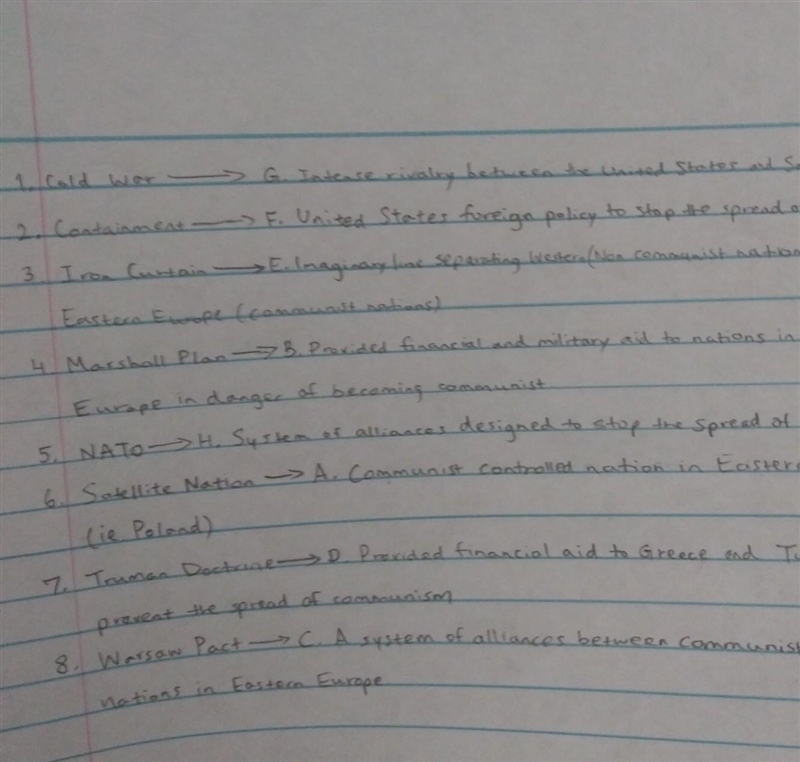 1. Cold War → G. Intense rivalry between the United States and S
2. Containment → F. United States foreign policy to stop the spread o
3 Iron Curtain → E. Imaginary line separating Western (Non communist nation
Eastern Europe (communist nations)
4 Marshall Plan → B. Provided financial and military aid to nations in
Europe in danger of becoming communist
5. NATO → H. System of alliances designed to stop the spread of
6. Satellite Nation → A. Communist controlled nation in Easter
(ie Poland)
7. Truman Doctrine → D. Provided financial aid to Greece and Tu
prevent the spread of communism
8. Warsaw Pact → C. A system of alliances between communist
nations in Eastern Europe